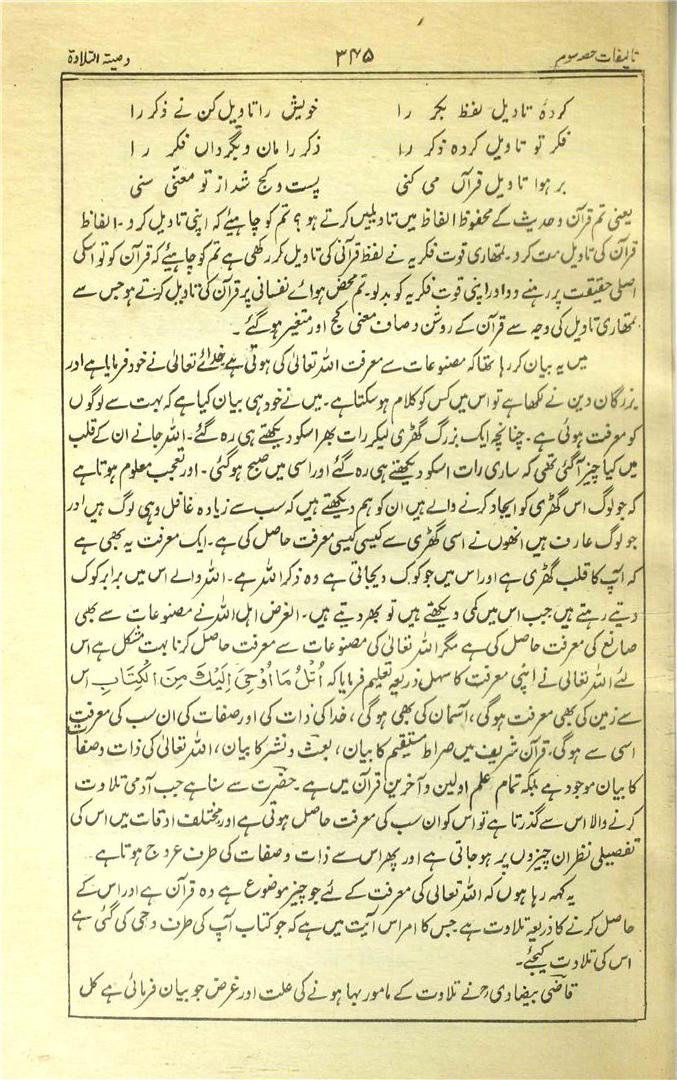 تالیفات حصہ سوم ۳۴۵ وصیۃ التلاوۃ
کردۂ تاویل لفظ بکر را خویش را تاویل کن نے ذکر را
فکر تو تاویل کردہ ذکر را ذکر را مان و بگرداں فکر را
بر ہوا تاویل قرآں می کنی پست و کج شد از تو معنّی سنی
یعنی تم قرآن و حدیث کے محفوظ الفاظ میں تاویلیں کرتے ہو؟ تم کو چاہیئے کہ اپنی تاویل کرو۔ الفاظ
قرآن کی تاویل مت کرو۔ تمھاری قوت فکریہ نے لفظ قرآنی کی تاویل کر رکھی ہے تم کو چاہیئے کہ قرآن کو تو اسکی
اصلی حقیقت پر رہنے دو اور اپنی قوت فکریہ کو بدلو۔ تم محض ہوائے نفسانی پر قرآن کی تاویل کرتے ہو جس سے
تمھاری تاویل کی وجہ سے قرآن کے روشن و صاف معنی کج اور متغیر ہو گئے ۔
میں یہ بیان کر رہا تھا کہ مصنوعات سے معرفت اللہ تعالیٰ کی ہوتی ہے خدائے تعالیٰ نے خود فرمایا ہے اور
بزرگان دین نے لکھا ہے تو اس میں کس کو کلام ہوسکتا ہے۔ میں نے خود ہی بیان کیا ہے کہ بہت سے لوگوں
کو معرفت ہوئی ہے۔ چنانچہ ایک بزرگ گھڑی لیکر رات بھر اسکو دیکھتے ہی رہ گئے۔ اللہ جانے ان کے قلب
میں کیا چیز آگئی تھی کہ ساری رات اسکو دیکھتے ہی رہ گئے اور اسی میں صبح ہوگئی۔ اور تعجب معلوم ہوتا ہے
کہ جو لوگ اس گھڑی کو ایجاد کرنے والے ہیں ان کو ہم دیکھتے ہیں کہ سب سے زیادہ غافل وہی لوگ ہیں اور
جو لوگ عارف ہیں انھوں نے اسی گھڑی سے کیسی کیسی معرفت حاصل کی ہے۔ ایک معرفت یہ بھی ہے
کہ آپ کا قلب گھڑی ہے اور اس میں جو کوک دیجاتی ہے وہ ذکر اللہ ہے۔ اللہ والے اس میں برابر کوک
دیتے رہتے ہیں جب اس میں کمی دیکھتے ہیں تو بھر دیتے ہیں۔ الغرض اہل اللہ نے مصنوعات سے بھی
صانع کی معرفت حاصل کی ہے مگر اللہ تعالیٰ کی مصنوعات سے معرفت حاصل کرنا بہت مشکل ہے اس
لئے اللہ تعالیٰ نے اپنی معرفت کا سہل ذریعہ تعلیم فرمایا کہ اُتْلُ مَا اُوْحِیَ اِلَیْکَ مِنَ الْکِتَابِ اس
سے زمین کی بھی معرفت ہوگی، آسمان کی بھی ہوگی، خدا کی ذات کی اور صفات کی ان سب کی معرفت
اسی سے ہوگی۔ قرآن شریف میں صراط مستقیم کا بیان، بعث و نشر کا بیان، اللہ تعالیٰ کی ذات و صفات
کا بیان موجود ہے بلکہ تمام علم اولین و آخرین قرآن میں ہے۔ حضرت سے سنا ہے جب آدمی تلاوت
کرنے والا اس سے گذرتا ہے تو اس کو ان سب کی معرفت حاصل ہوتی ہے اور مختلف اوقات میں اس کی
تفصیلی نظر ان چیزوں پر ہو جاتی ہے اور پھر اس سے ذات و صفات کی طرف عروج ہوتا ہے۔
یہ کہہ رہا ہوں کہ اللہ تعالیٰ کی معرفت کے لئے جو چیز موضوع ہے وہ قرآن ہے اور اس کے
حاصل کرنے کا ذریعہ تلاوت ہے جس کا امر اس آیت میں ہے کہ جو کتاب آپ کی طرف وحی کی گئی ہے
اس کی تلاوت کیجئے۔
قاضی بیضاویؒ نے تلاوت کے مامور بہا ہونے کی علت اور غرض جو بیان فرمائی ہے کل